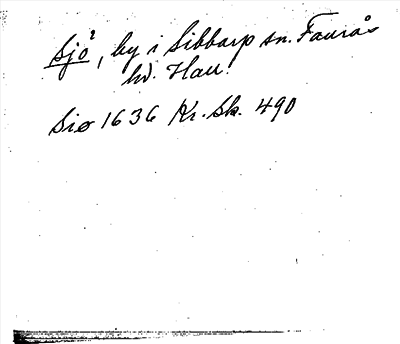 Sjö², by i Sibbarp sn. Faurås
hd. Hall.
Siø 1636 Kr. Sk. 490